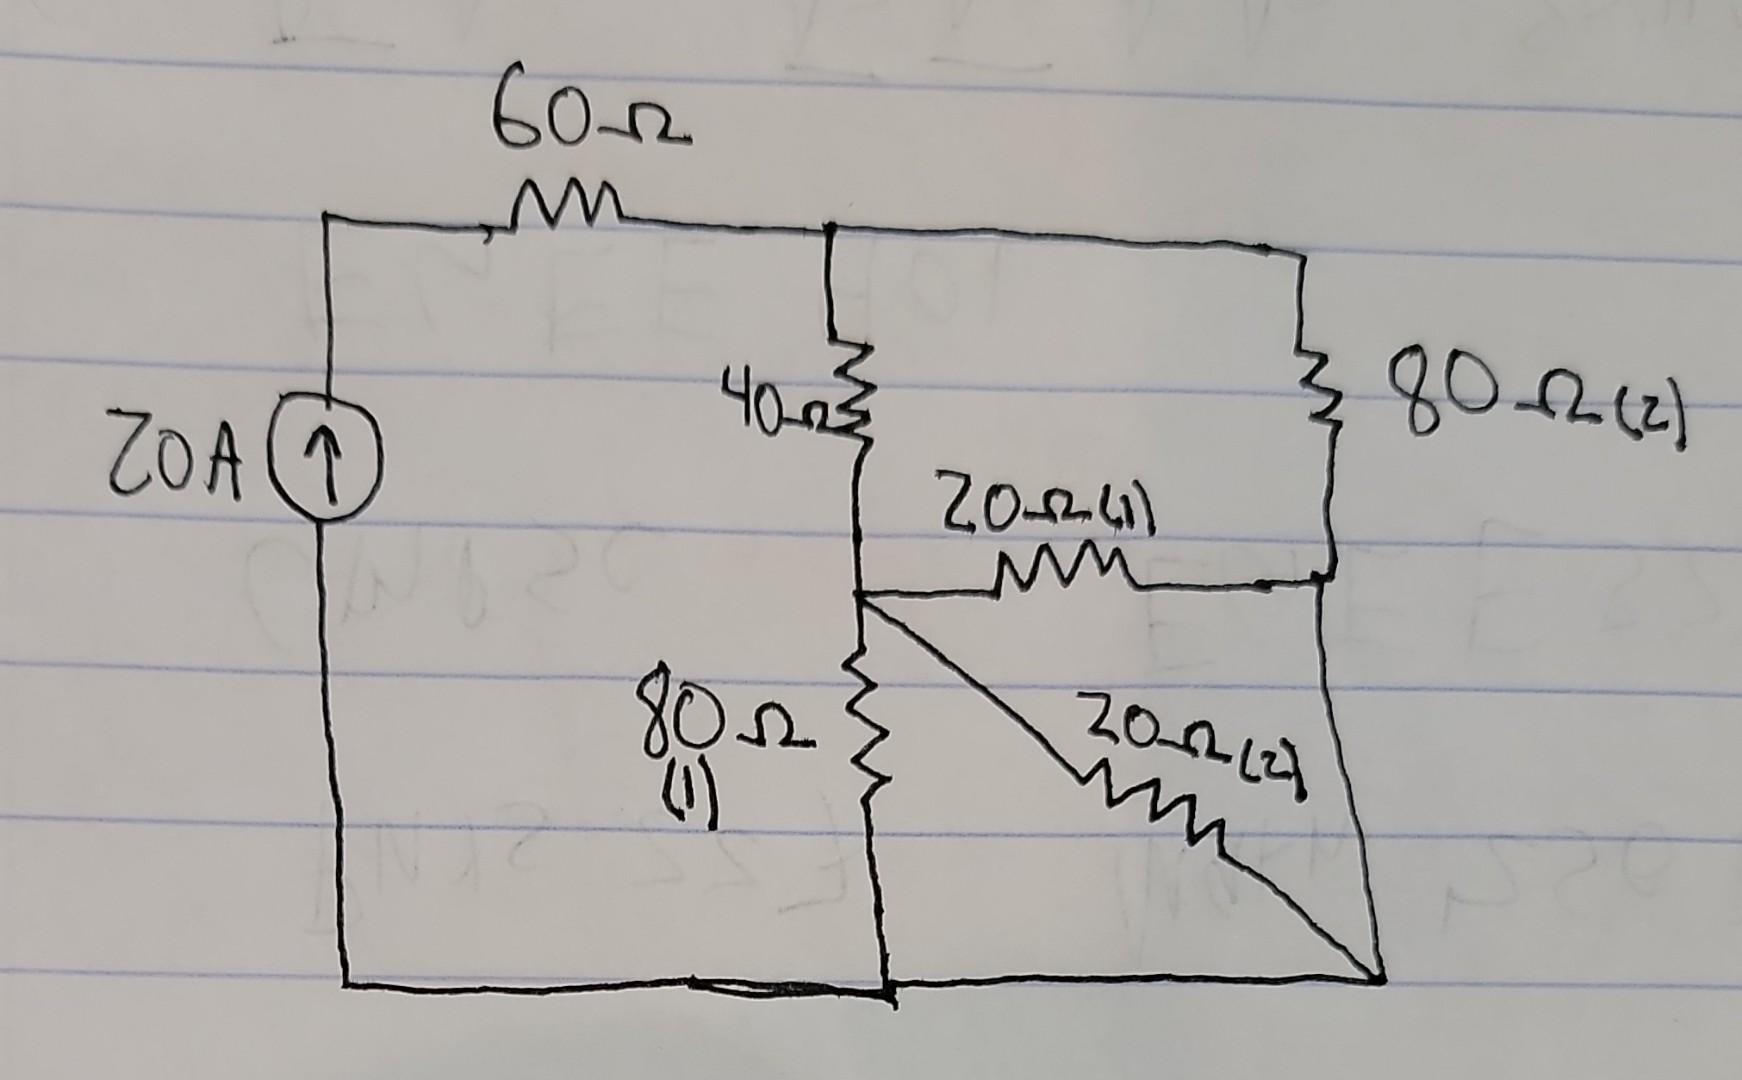 60Ω
20A
40Ω
80Ω(2)
20Ω(1)
80Ω
(1)
20Ω(2)